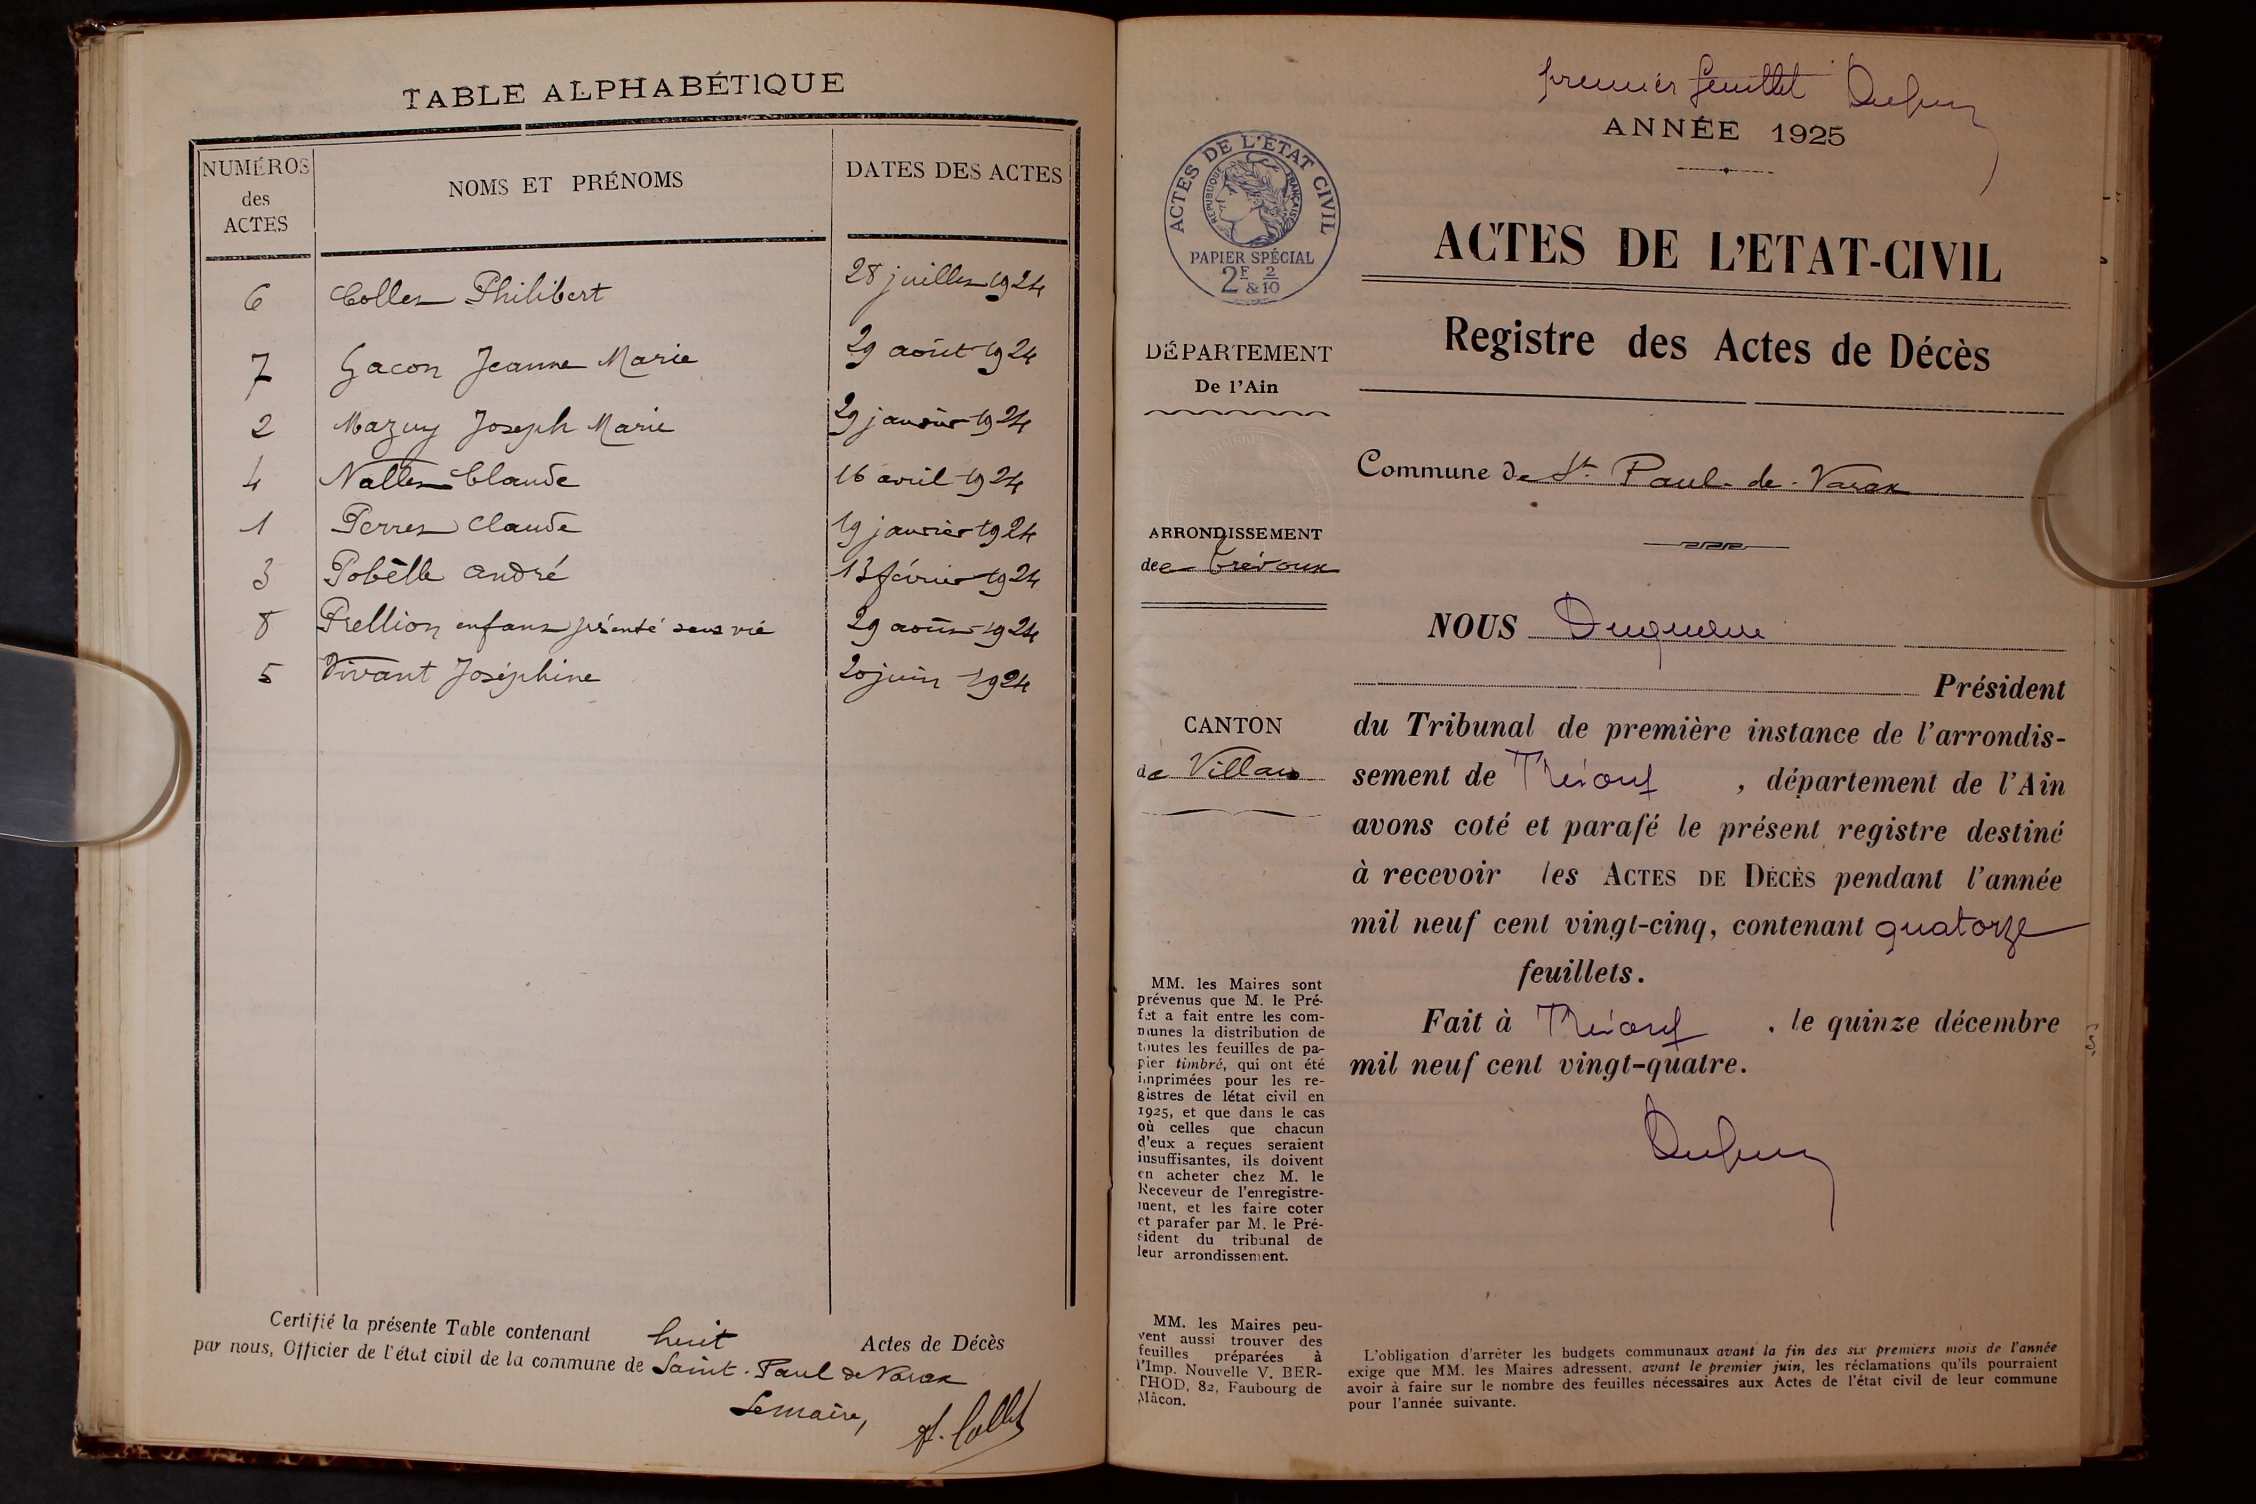 TABLE ALPHABÉTIQUE
NUMÉROS des ACTES
NOMS ET PRÉNOMS
DATES DES ACTES
6 Collet Philibert 28 juillet 1924
7 Gacon Jeanne Marie 29 août 1924
2 Mazuy Joseph Marie 29 janvier 1924
4 Nallet Claude 16 avril 1924
1 Perret Claude 19 janvier 1924
3 Pobèlle André 13 février 1924
8 Prellion enfant présenté sans vie 29 août 1924
5 Vivant Joséphine 20 juin 1924
Certifié la présente Table contenant huit Actes de Décès
par nous, Officier de l'état civil de la commune de Saint-Paul de Varax
Le maire,
premier feuillet
ANNÉE 1925
ACTES DE L'ÉTAT CIVIL
RÉPUBLIQUE FRANÇAISE
PAPIER SPÉCIAL
2F 2
& 10
DÉPARTEMENT
De l'Ain
ARRONDISSEMENT
de Trévoux
CANTON
de Villars
MM. les Maires sont
prévenus que M. le Pré-
fet a fait entre les com-
munes la distribution de
toutes les feuilles de pa-
pier timbré, qui ont été
imprimées pour les re-
gistres de létat civil en
1925, et que dans le cas
où celles que chacun
d'eux a reçues seraient
insuffisantes, ils doivent
en acheter chez M. le
Receveur de l'enregistre-
ment, et les faire coter
et parafer par M. le Pré-
sident du tribunal de
leur arrondissement.
MM. les Maires peu-
vent aussi trouver des
feuilles préparées à
l'Imp. Nouvelle V. BER-
THOD, 82, Faubourg de
Mâcon.
ACTES DE L'ETAT-CIVIL
Registre des Actes de Décès
Commune de St Paul-de-Varax
NOUS
Président
du Tribunal de première instance de l'arrondis-
sement de Trévoux, département de l'Ain
avons coté et parafé le présent registre destiné
à recevoir les ACTES DE DÉCÈS pendant l'année
mil neuf cent vingt-cinq, contenant quatorze
feuillets.
Fait à Trévoux, le quinze décembre
mil neuf cent vingt-quatre.
L'obligation d'arrêter les budgets communaux avant la fin des six premiers mois de l'année
exige que MM. les Maires adressent, avant le premier juin, les réclamations qu'ils pourraient
avoir à faire sur le nombre des feuilles nécessaires aux Actes de l'état civil de leur commune
pour l'année suivante.